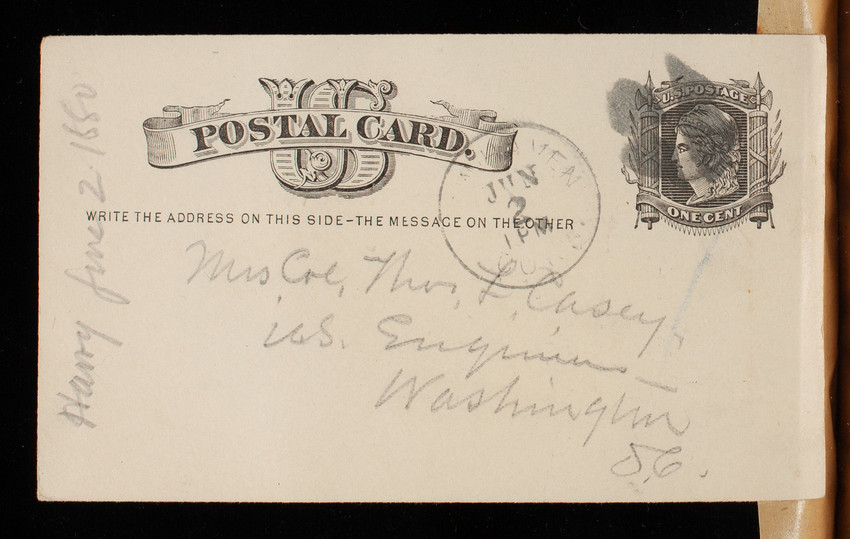 US
POSTAL CARD.
U.S. POSTAGE
ONE CENT
WRITE THE ADDRESS ON THIS SIDE-THE MESSAGE ON THE OTHER
JUN
2
1 PM
Mrs Col, Thos, L, Casey.
U.S. Engineers
Washington
D.C.
Harry June 2. 1880